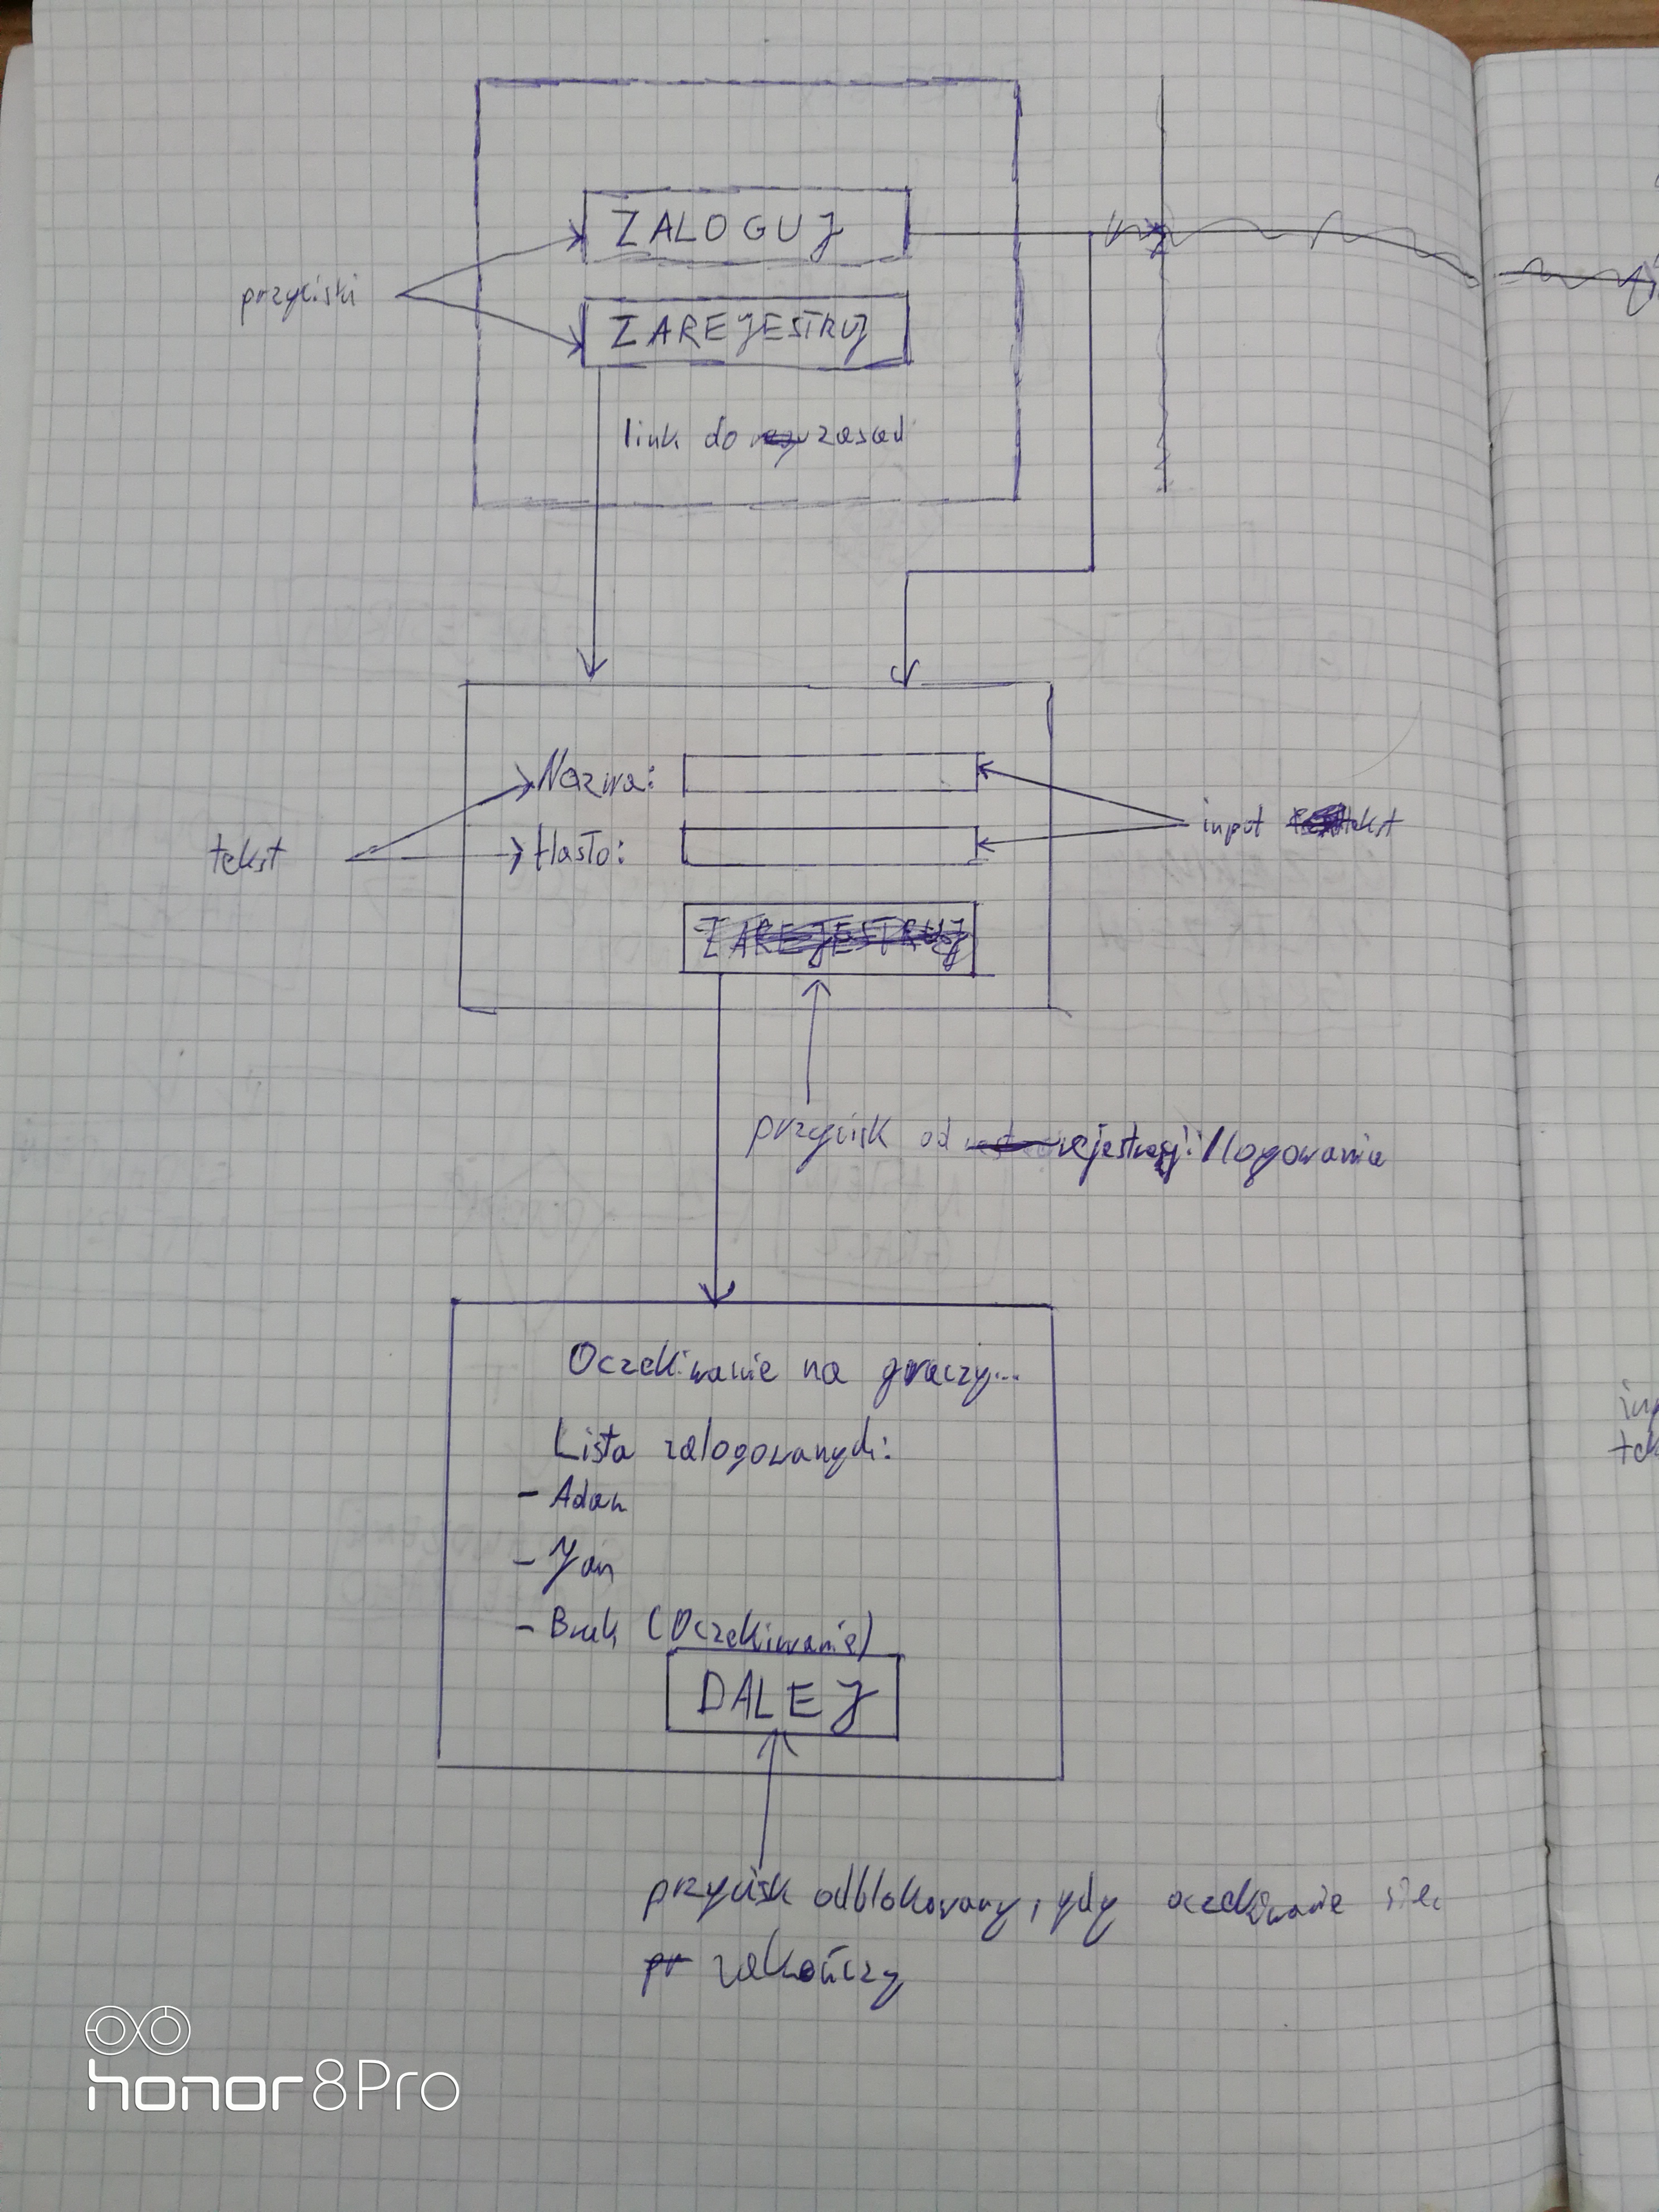 ZALOGUJ
przyciski
ZAREJESTRUJ
link do zasad
Nazwa:
input tekst
tekst
Hasło:
ZAREJESTRUJ
przycisk od rejestracji/logowania
Oczekiwanie na graczy...
Lista zalogowanych:
- Adam
- Jan
- Brak (Oczekiwanie)
DALEJ
przycisk odblokowany, gdy oczekiwanie się
pr zakończy
honor 8 Pro